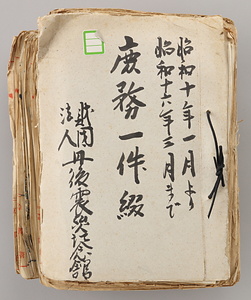 昭和十年一月より
昭和十六年三月まで
庶務一件綴
財団
法人
丹後震災記念館